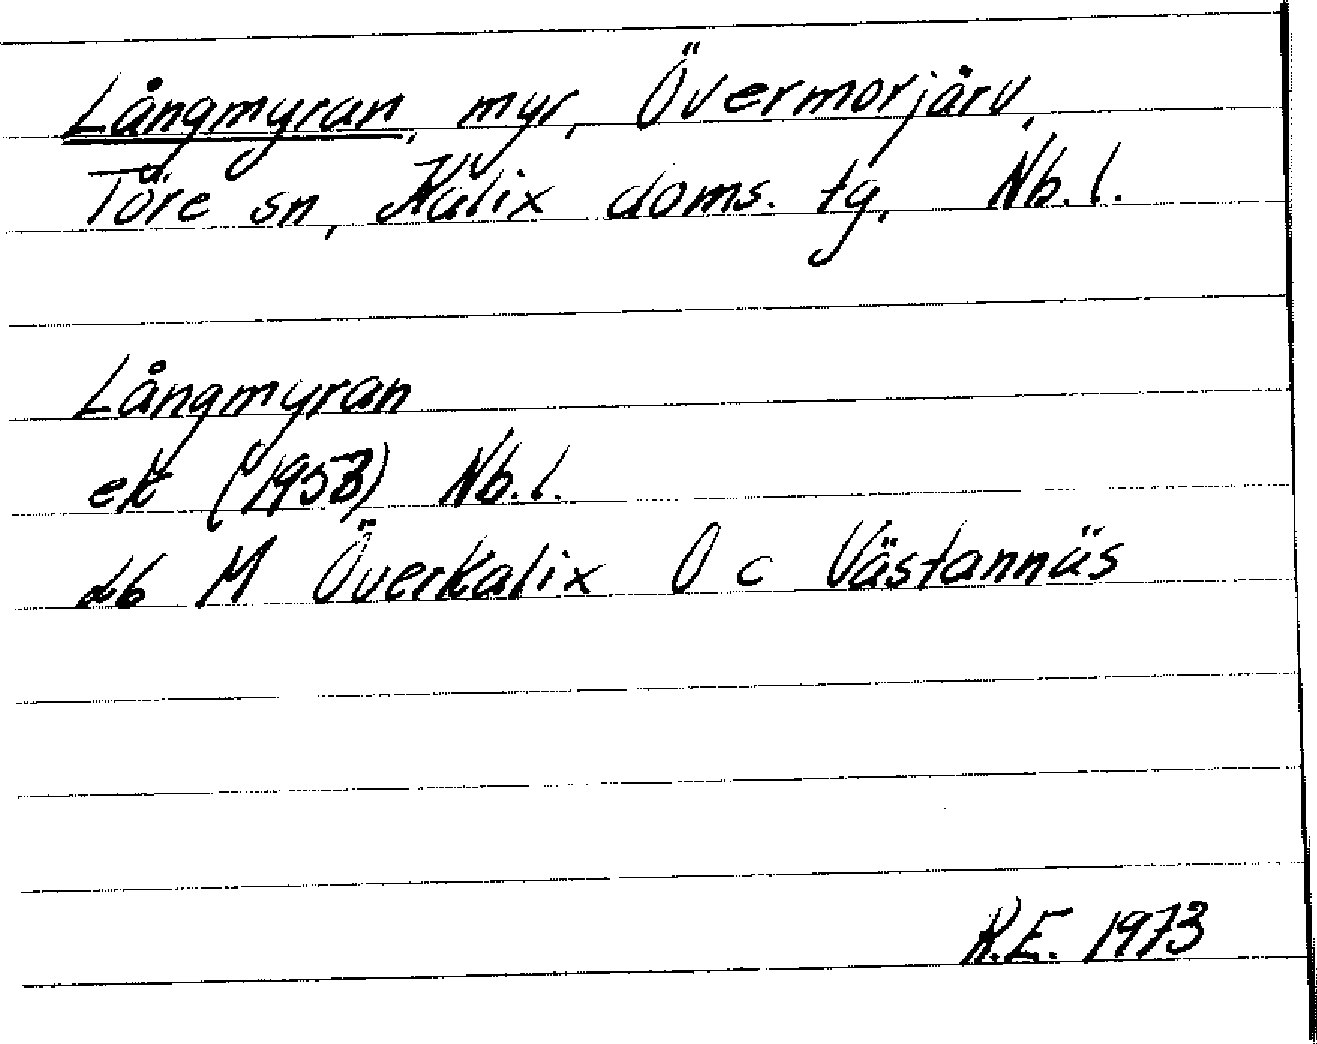 Långmyran, myr, Övermorjärv,
Töre sn, Kalix doms. tg. Nb. l.
Långmyran
ek (1953) Nb. l.
db M Överkalix O c Västannäs
K.E. 1973